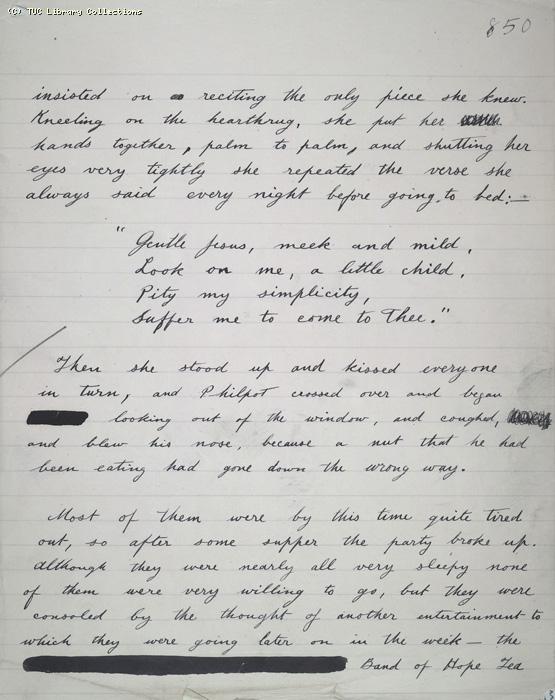 (C) TUC Library Collections
850
insisted on reciting the only piece she knew.
Kneeling on the hearthrug, she put her
hands together, palm to palm, and shutting her
eyes very tightly she repeated the verse she
always said every night before going to bed:—
"Gentle Jesus, meek and mild,
Look on me, a little child,
Pity my simplicity,
Suffer me to come to Thee."
Then she stood up and kissed everyone
in turn, and Philpot crossed over and began
looking out of the window, and coughed,
and blew his nose, because a nut that he had
been eating had gone down the wrong way.
Most of them were by this time quite tired
out, so after some supper the party broke up.
Although they were nearly all very sleepy none
of them were very willing to go, but they were
consoled by the thought of another entertainment to
which they were going later on in the week — the
Band of Hope Tea